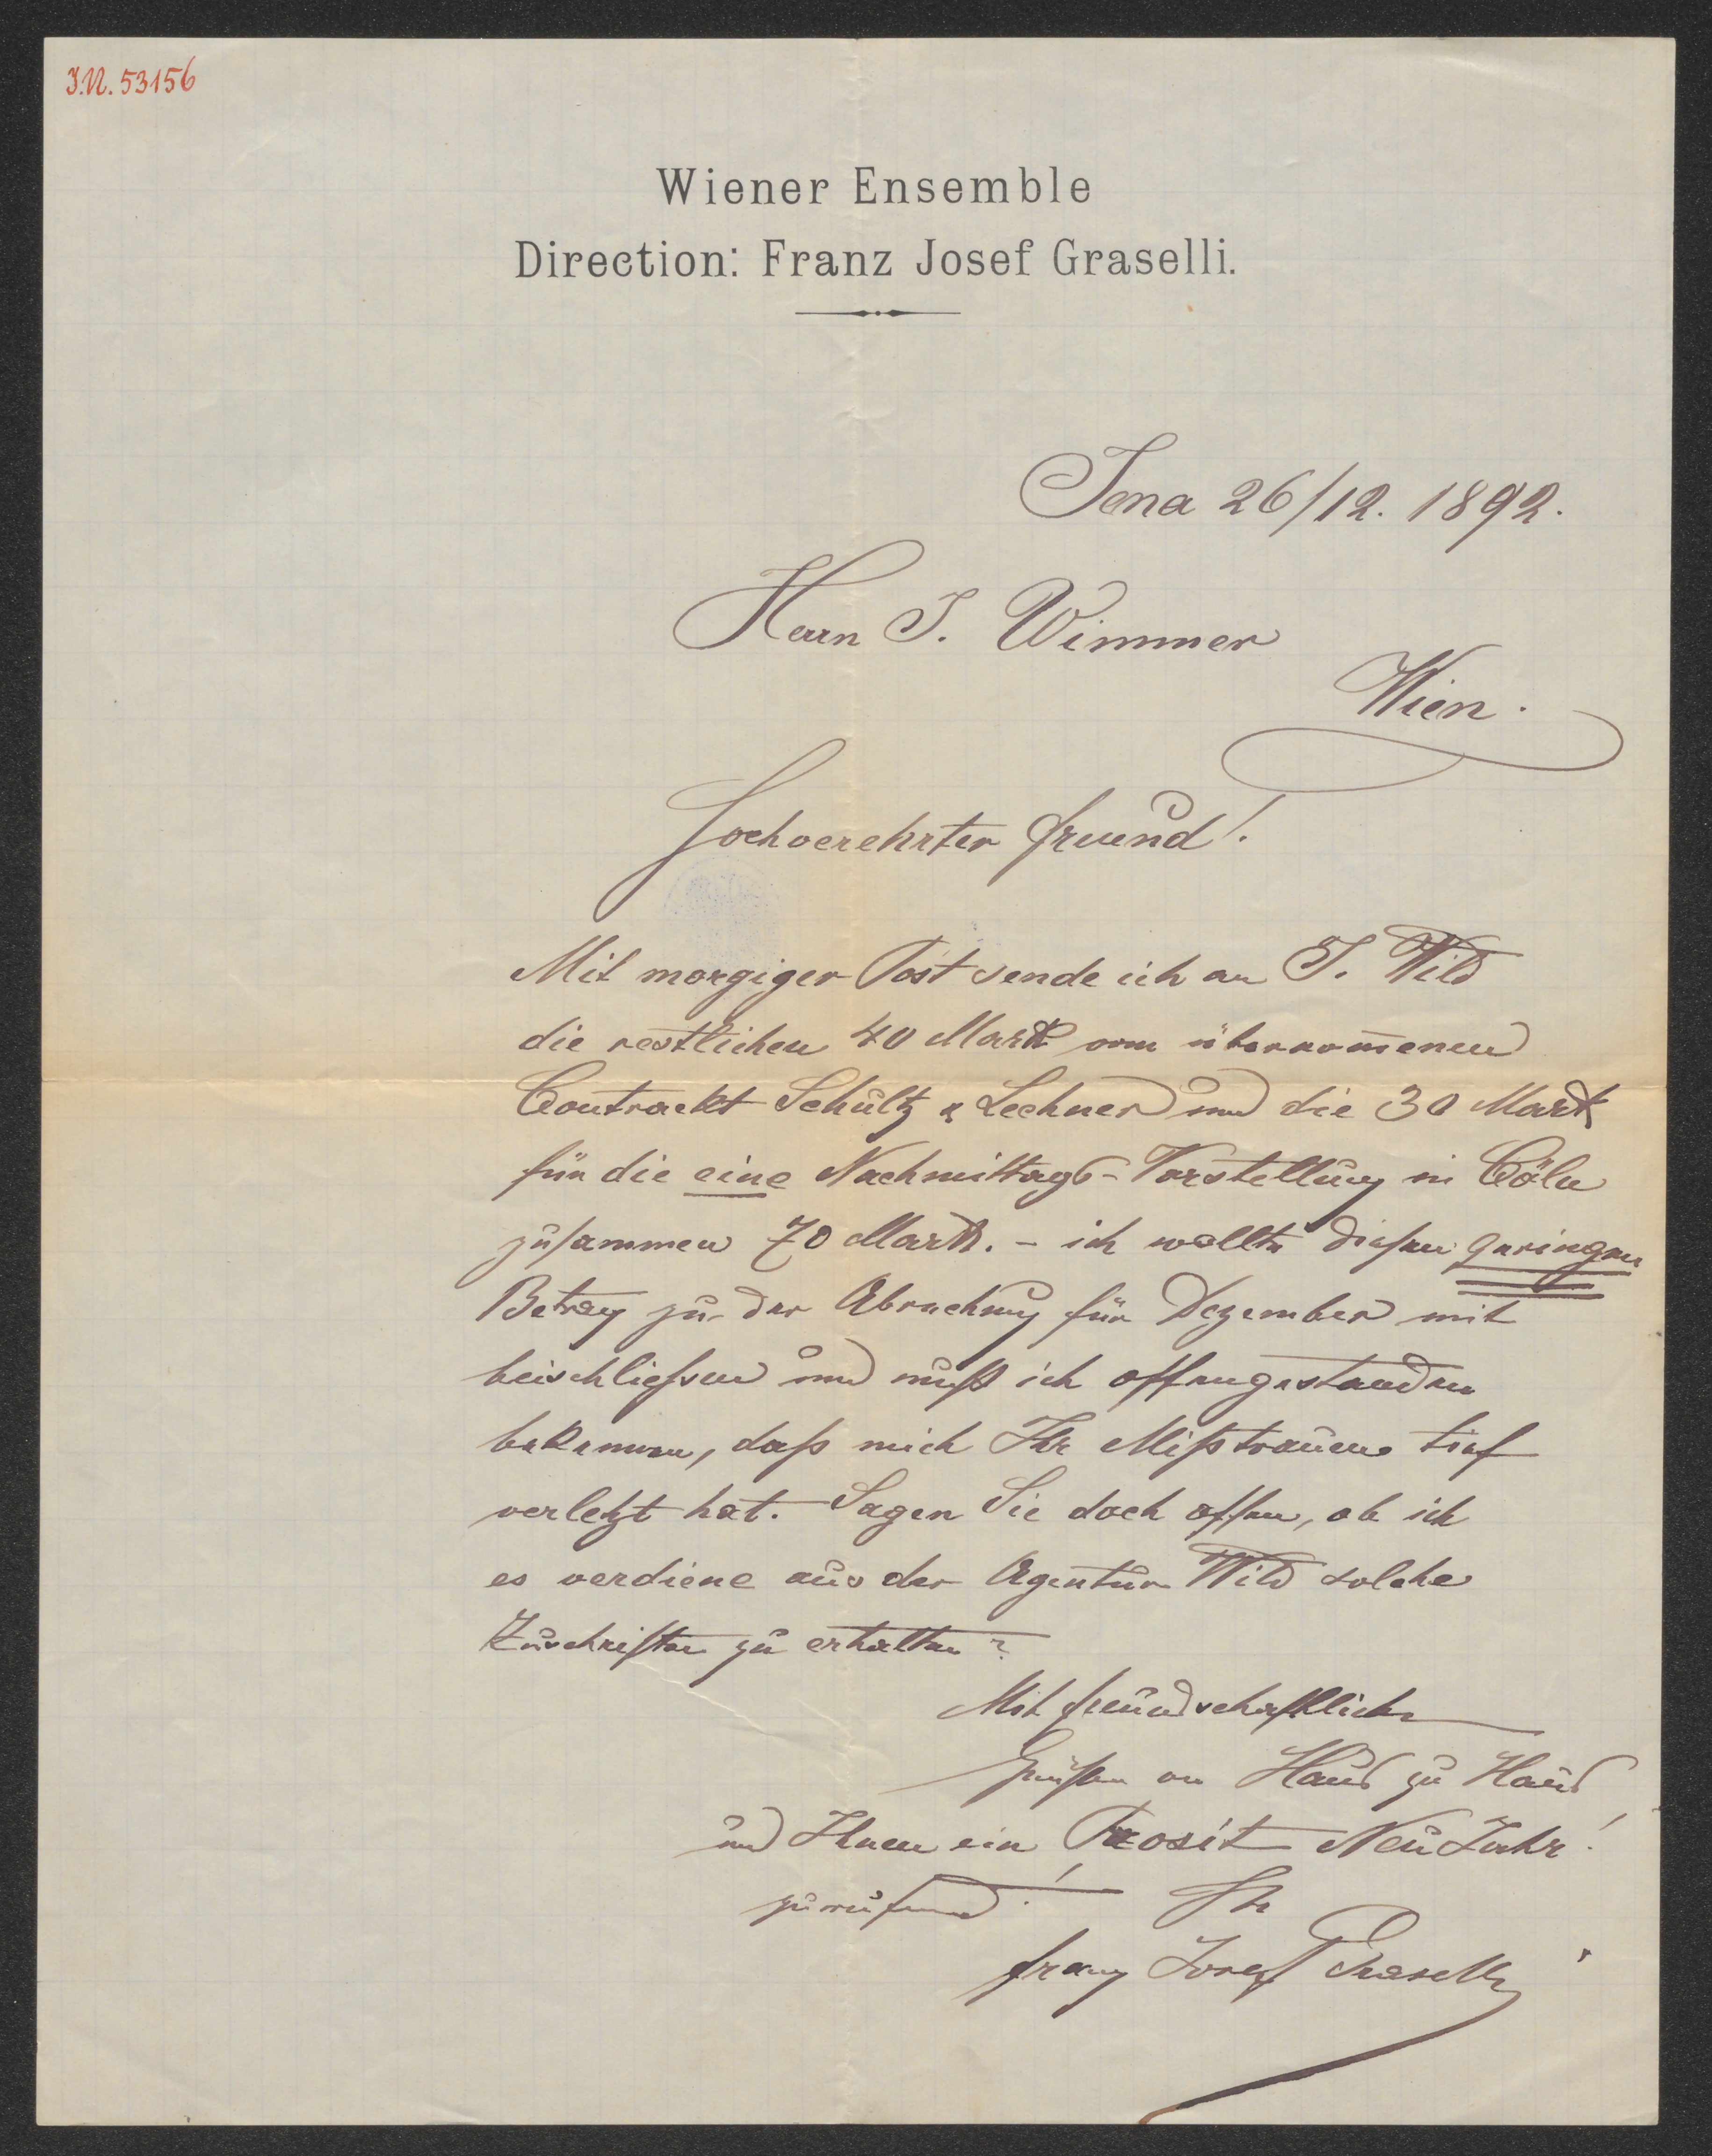 J.N. 53156
Wiener Ensemble
Direction: Franz Josef Graselli.
Jena 26/12. 1892.
Herrn J. Wimmer
Wien.
Hochverehrter Freund!
Mit morgiger Post sende ich an J. Wild
die restlichen 40 Mark vom übernom̅enen
Contrackt Schultz & Lechner und die 30 Mark
für die eine Nachmittags-Vorstellung in Cöln
zusammen 70 Mark. - ich wollte diesen geringen
Betrag zu der Abrechnung für Dezember mit
beischließen und muß ich offengestanden
bekennen, daß mich Ihr Mißtrauen tief
verletzt hat. Sagen Sie doch offen, ob ich
es verdiene aus der Agentur Wild solche
Zuschriften zu erhalten?
Mit freundschaftlichen
Grüßen von Haus zu Haus
und Ihnen ein Prosit Neu Jahr!
zurufend! Ihr
Franz Josef Graselli